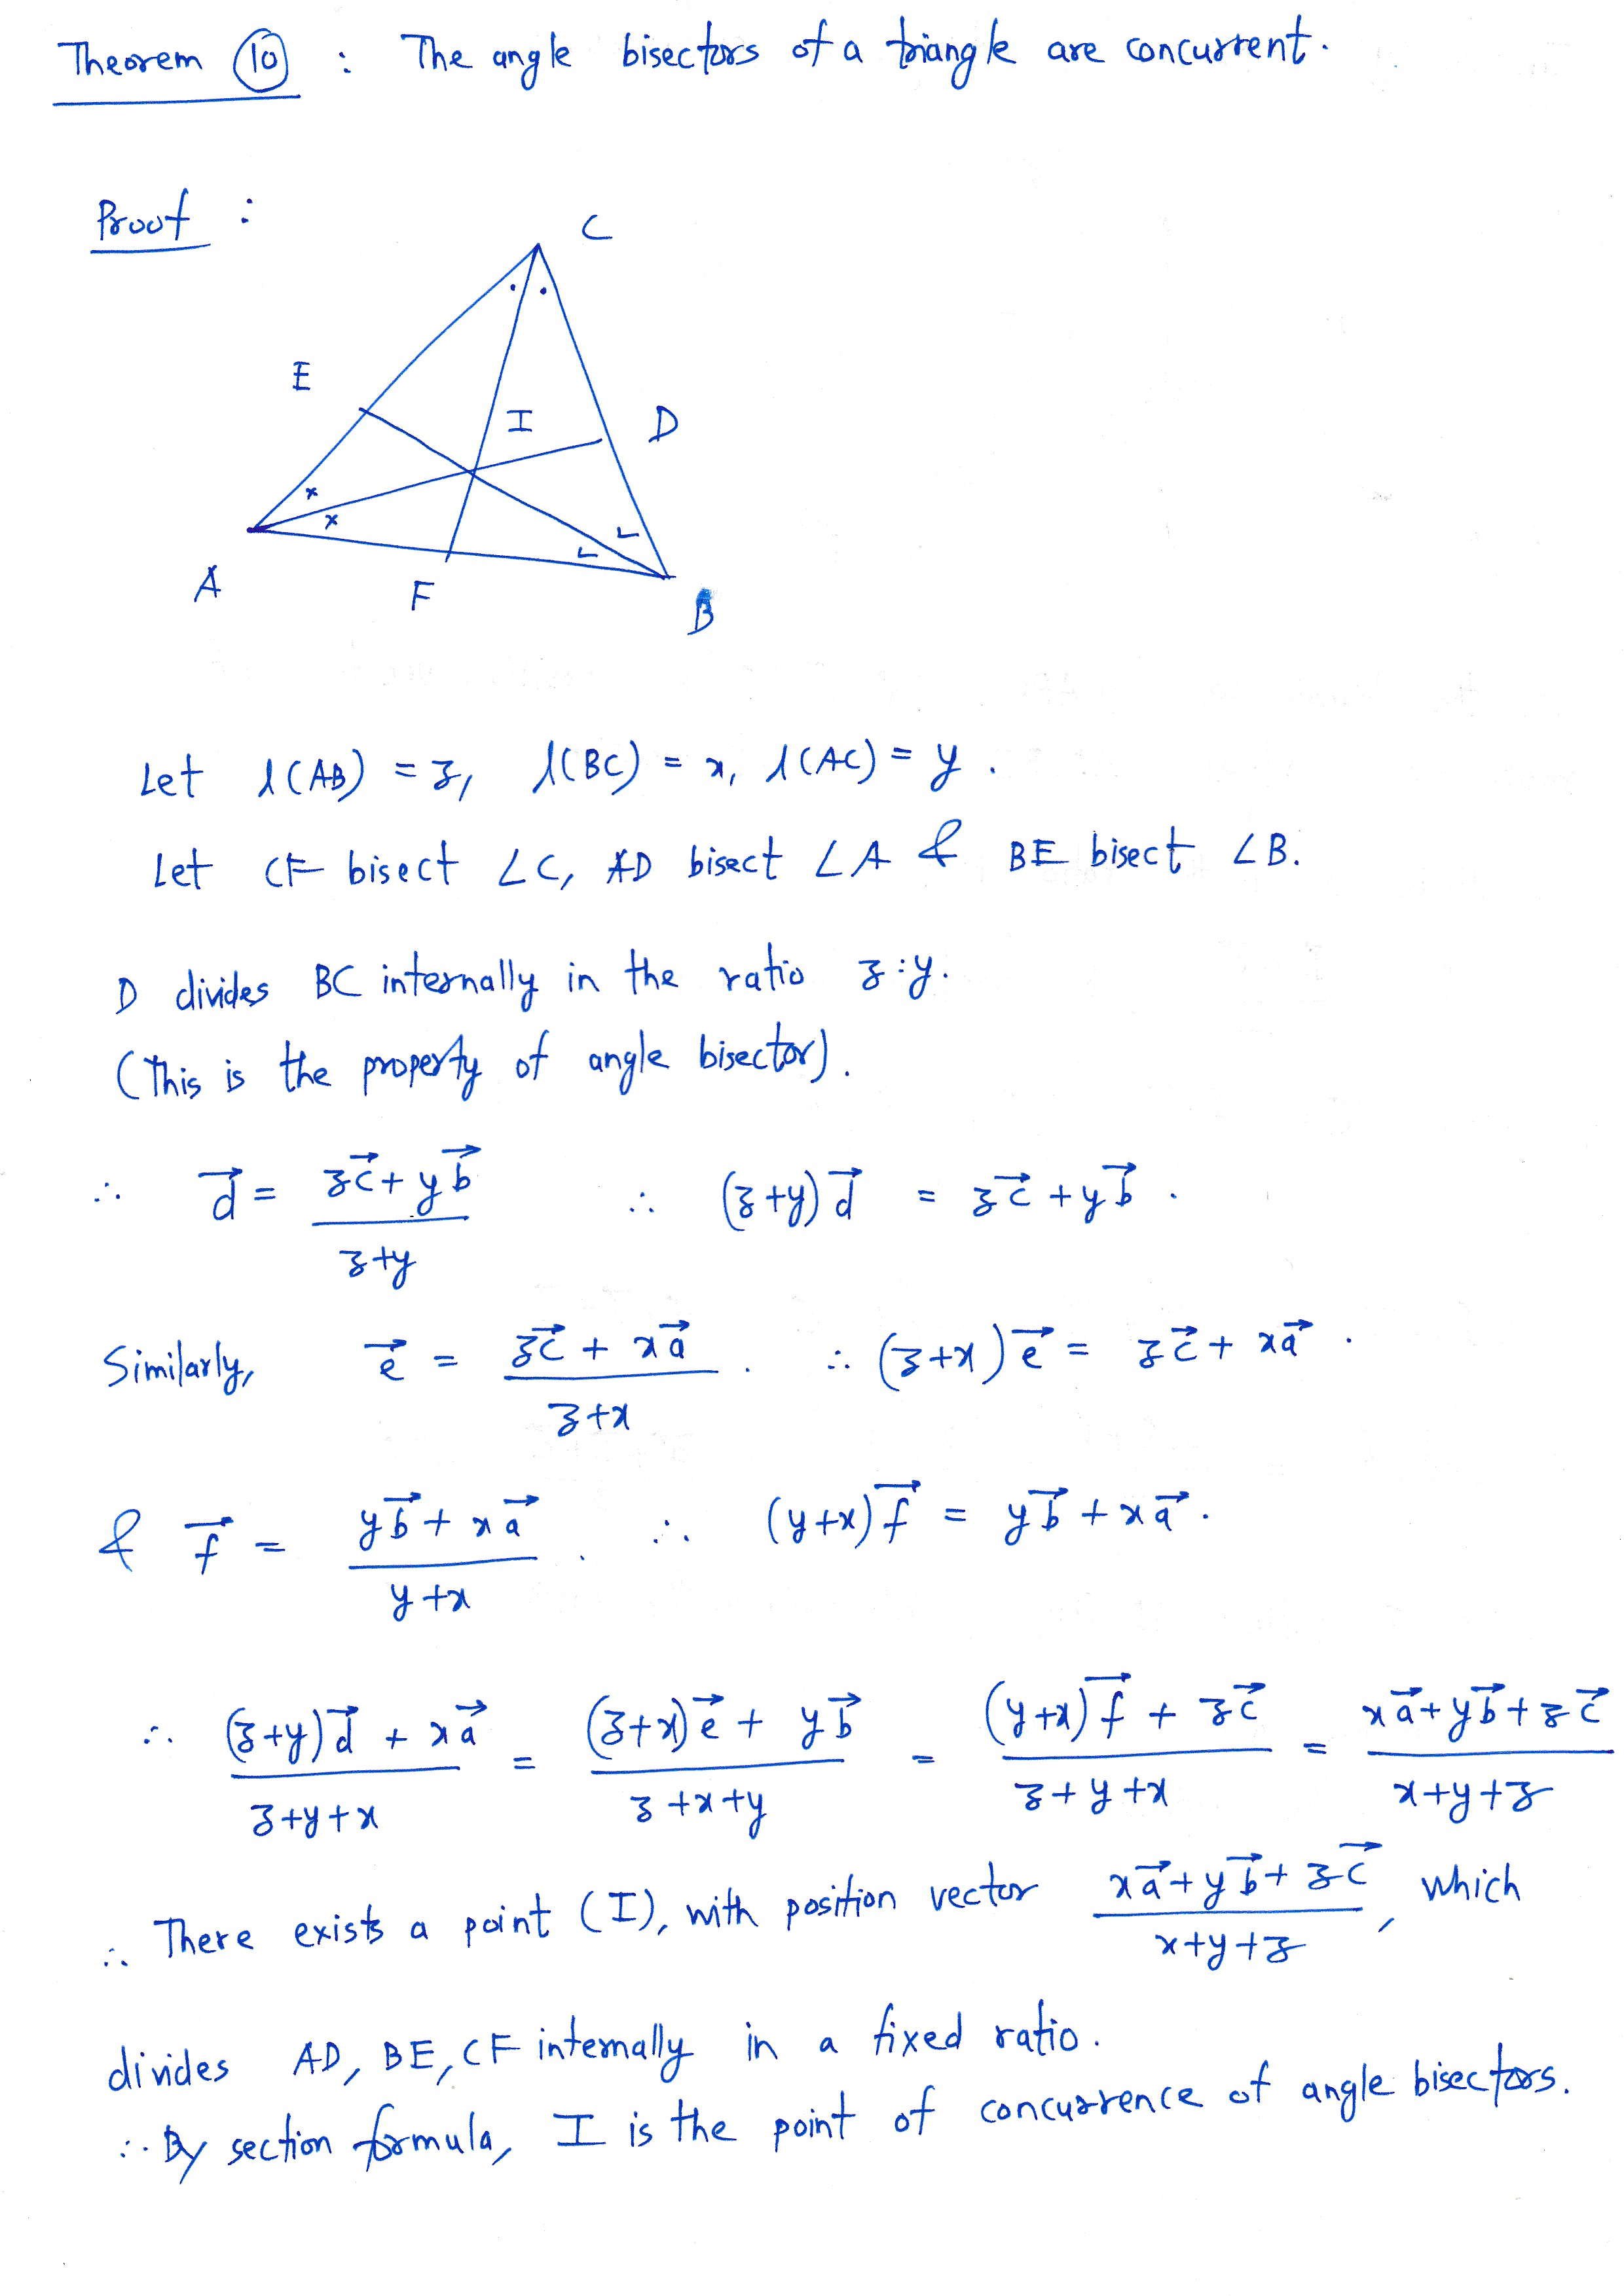 Theorem 10 : The angle bisectors of a triangle are concurrent.
Proof :
C
E
I
D
x
x
A
F
B
Let l(AB) = z, l(BC) = x, l(AC) = y .
Let CF bisect ∠C, AD bisect ∠A & BE bisect ∠B.
D divides BC internally in the ratio z:y.
(This is the property of angle bisector).
∴ d⃗ = (zc⃗ + yb⃗)/(z+y) ∴ (z+y)d⃗ = zc⃗ + yb⃗ .
Similarly, e⃗ = (zc⃗ + xa⃗)/(z+x) . ∴ (z+x)e⃗ = zc⃗ + xa⃗ .
& f⃗ = (yb⃗ + xa⃗)/(y+x) . ∴ (y+x)f⃗ = yb⃗ + xa⃗ .
∴ ((z+y)d⃗ + xa⃗)/(z+y+x) = ((z+x)e⃗ + yb⃗)/(z+x+y) = ((y+x)f⃗ + zc⃗)/(z+y+x) = (xa⃗ + yb⃗ + zc⃗)/(x+y+z)
∴ There exists a point (I), with position vector (xa⃗ + yb⃗ + zc⃗)/(x+y+z), which
divides AD, BE, CF internally in a fixed ratio.
∴ By section formula, I is the point of concurrence of angle bisectors.